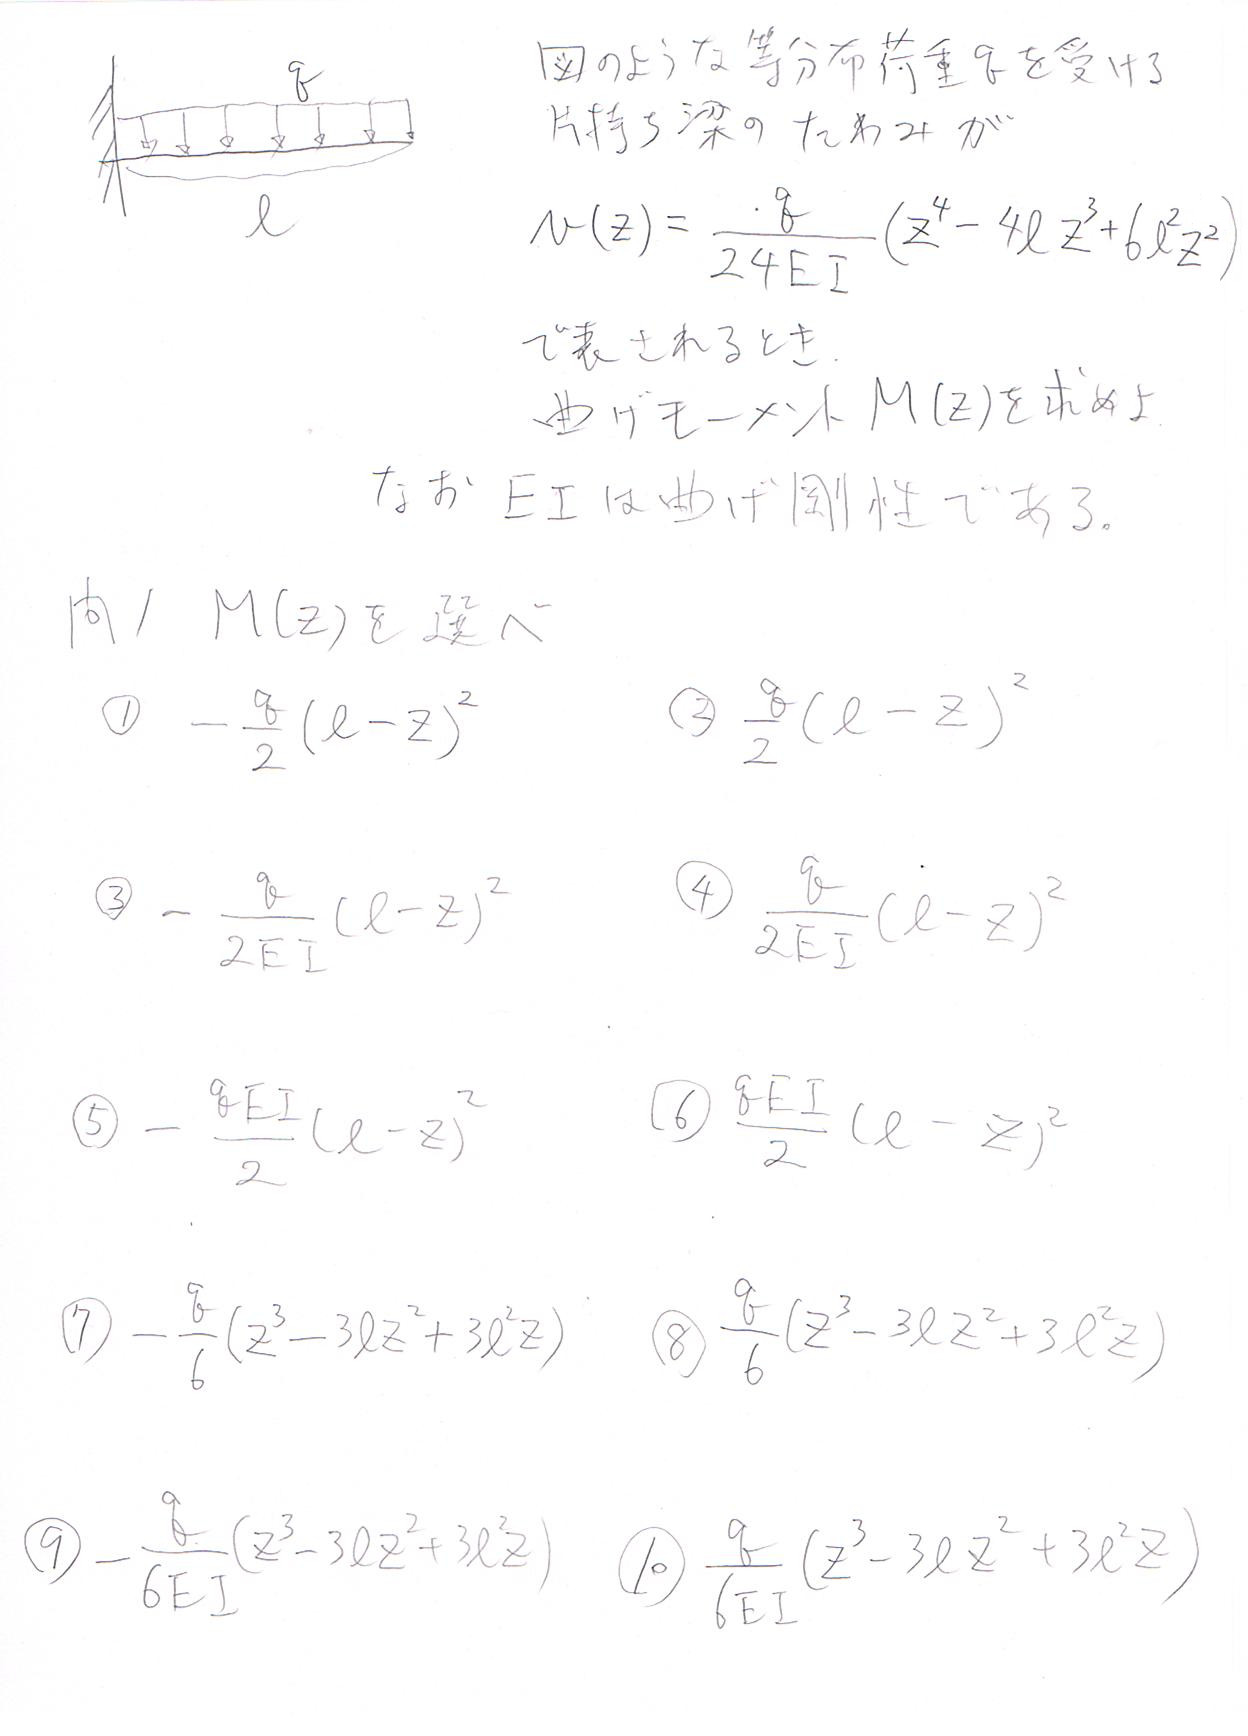 q
l
図のような等分布荷重qを受ける
片持ち梁のたわみが
v(z) = q/24EI (z⁴ - 4lz³ + 6l²z²)
で表されるとき.
曲げモーメントM(z)を求めよ
なおEIは曲げ剛性である。
問1 M(z)を選べ
① -q/2 (l-z)² ② q/2 (l-z)²
③ -q/2EI (l-z)² ④ q/2EI (l-z)²
⑤ -qEI/2 (l-z)² ⑥ qEI/2 (l-z)²
⑦ -q/6 (z³-3lz²+3l²z) ⑧ q/6 (z³-3lz²+3l²z)
⑨ -q/6EI (z³-3lz²+3l²z) ⑩ q/6EI (z³-3lz²+3l²z)